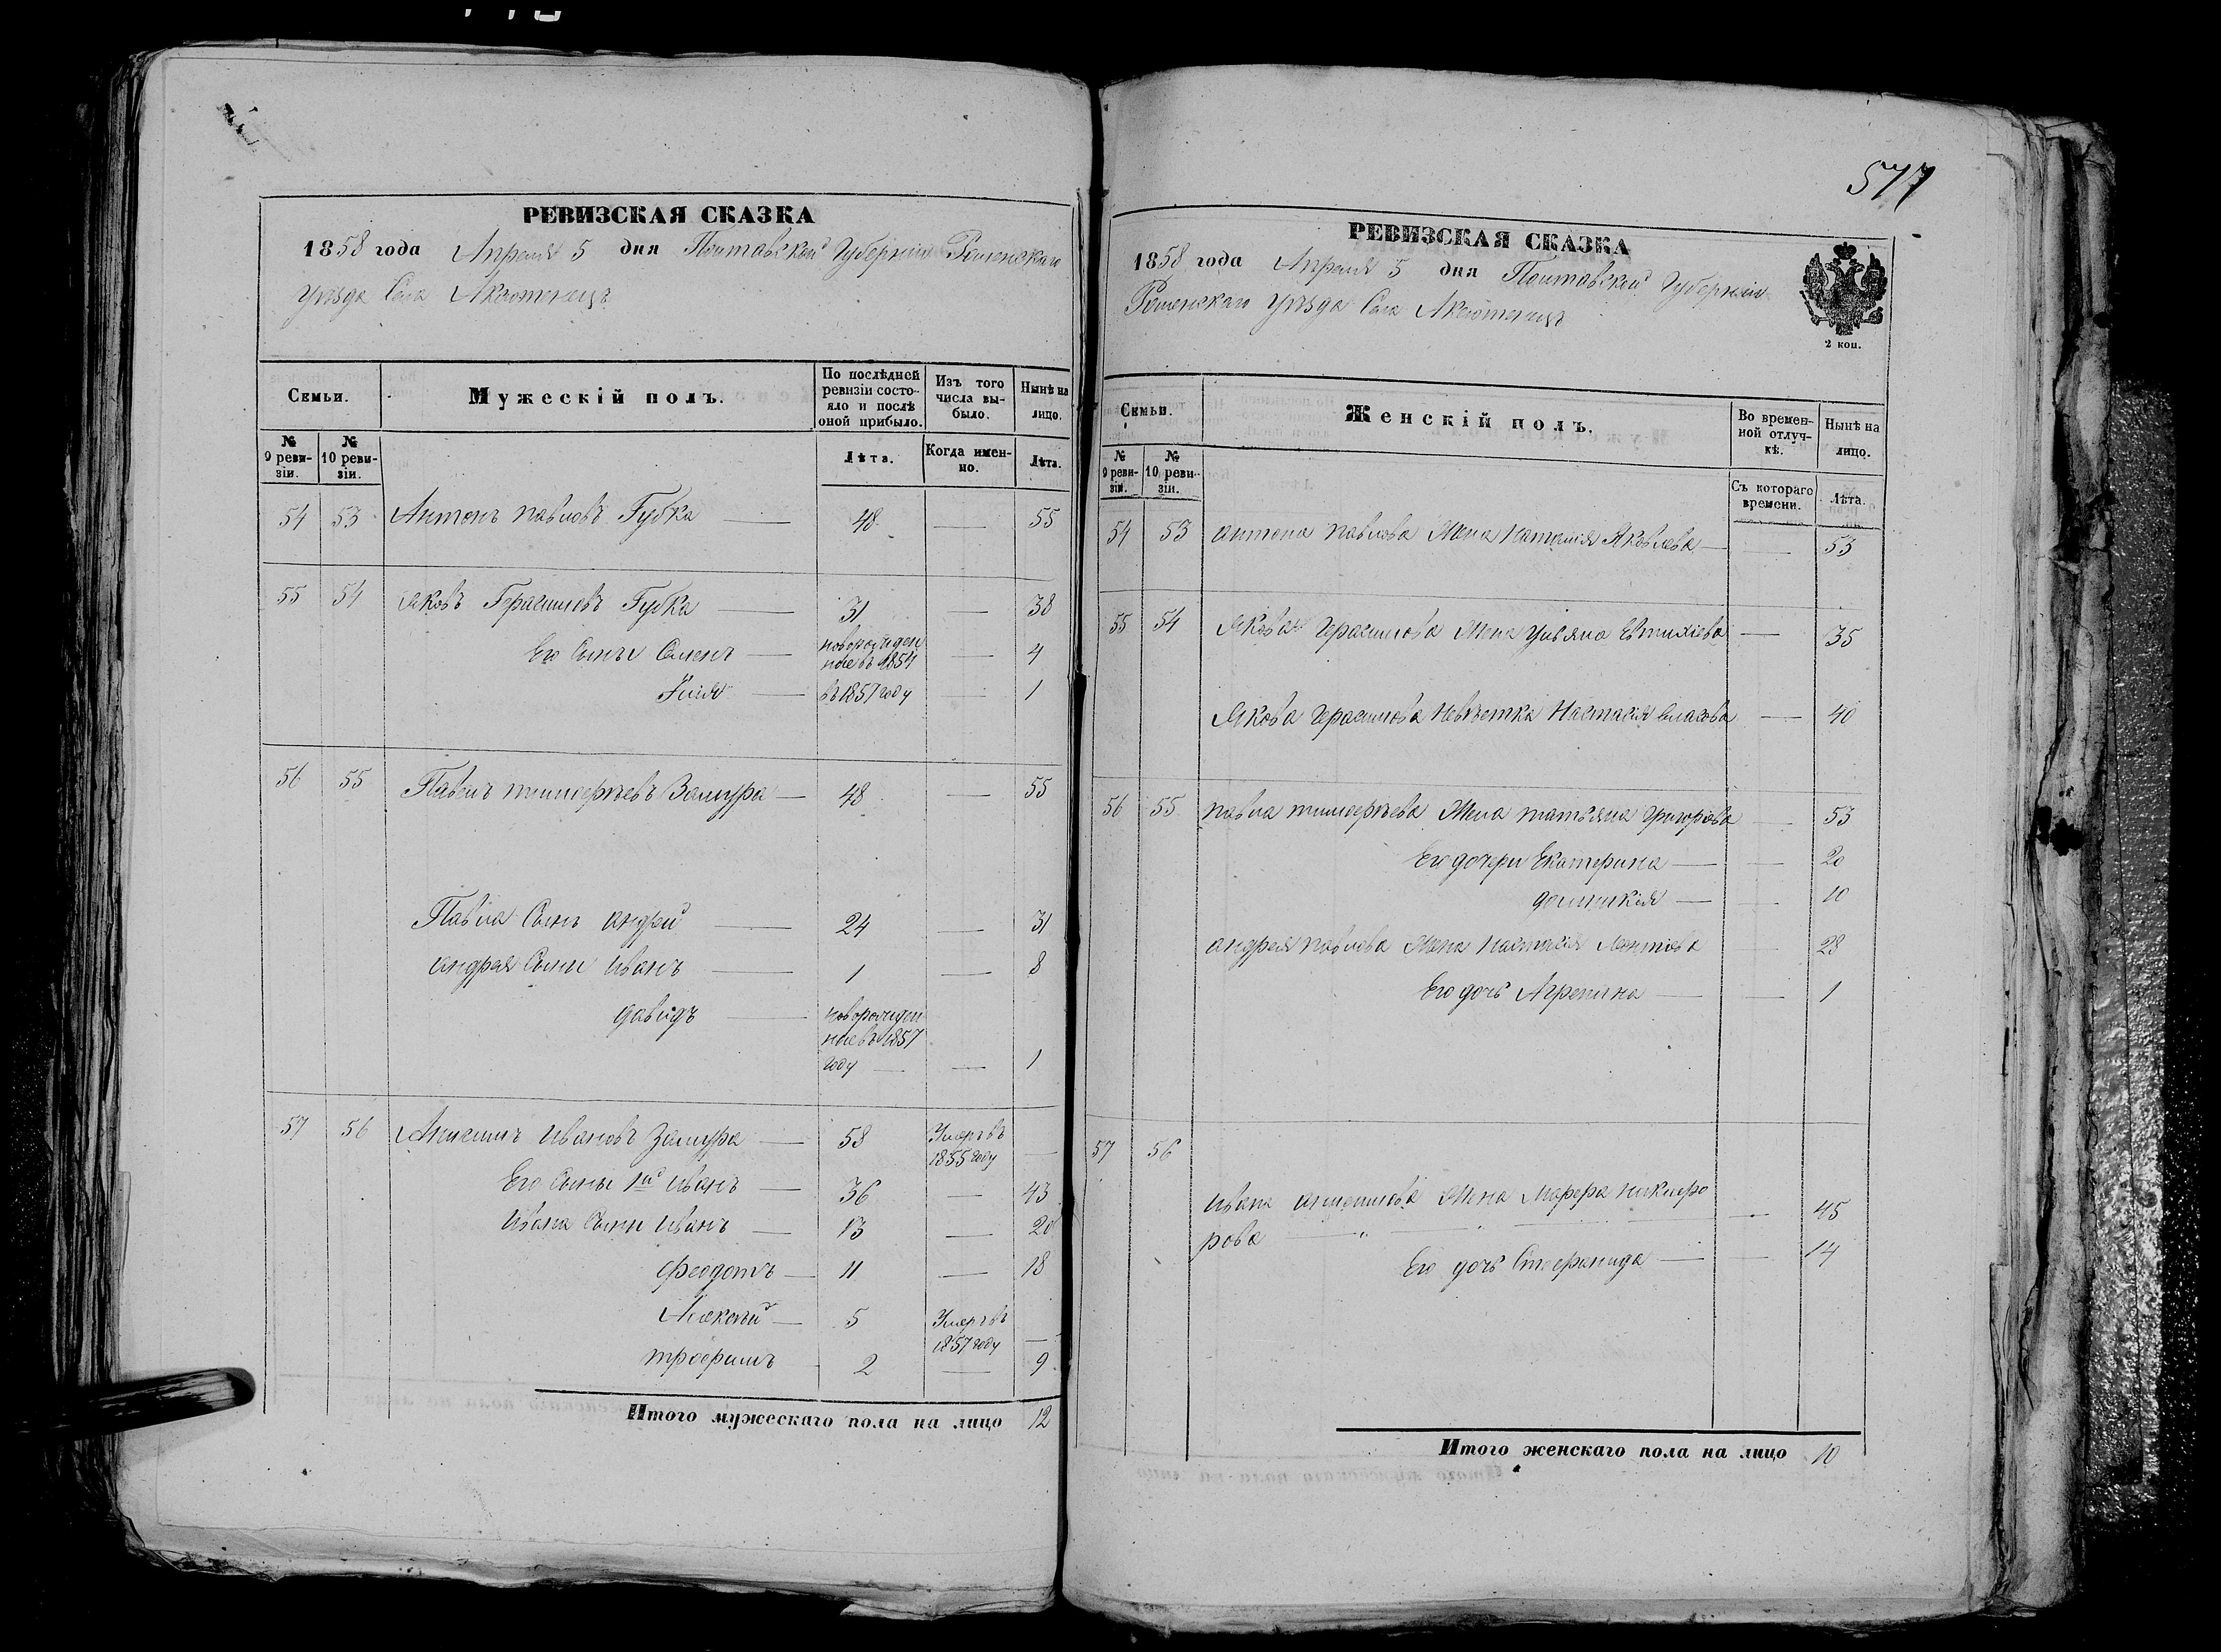 577
РЕВИЗСКАЯ СКАЗКА
1858 года Апреля 5 дня Полтавской Губерніи Роменскаго
Уѣзда Села Аксютенець
Семьи.
Мужескій полъ.
По послѣдней ревизіи состояло и послѣ оной прибыло.
Изъ того числа выбыло.
Нынѣ на лицо.
№ 9 ревизіи.
№ 10 ревизіи.
Лѣта.
Когда именно.
Лѣта.
54 53 Антонъ Павловъ Губка — 48 — 55
55 54 Яковъ Герасимовъ Губка — 31 — 38
Его Сыны Семенъ — новорожден
ные въ 1854 — 4
Илія — въ 1857 году — 1
56 55 Павелъ тимофѣевъ Замура — 48 — 55
Павла Сынъ андрей — 24 — 31
андрея Сыны Иванъ — 1 — 8
давидъ — новорожден
ные въ 1857
году — — 1
57 56 Ивановъ Замура — 58 Умеръ въ
1855 году —
Его Сыны 1й Иванъ — 36 — 43
Ивана Сыны Иванъ — 13 — 20
феодотъ — 11 — 18
Алексѣй — 5 Умеръ въ
1857 году —
трофимъ 2 — 9
Итого мужескаго пола на лицо 12
РЕВИЗСКАЯ СКАЗКА
1858 года Апреля 5 дня Полтавской Губерніи
Роменскаго Уѣзда Села Аксютенець
2 коп.
Семьи.
Женскій полъ.
Во временной отлучкѣ.
Нынѣ на лицо.
№ 9 ревизіи.
№ 10 ревизіи.
Съ котораго времени.
Лѣта.
54 53 антона павлова Жена Наталія Яковлева — — 53
55 54 Якова Герасимова Жена Ульяна Евтихіева — 35
Якова Герасимова Невѣстка Настасія Власова — 40
56 55 павла тимофѣева Жена татьяна Григорова — 53
Его дочери Екатерина — — 20
домникія — — 10
андрея павлова Жена настасія Леонтіева — 28
Его дочь Агрепина — — 1
57 56
Ивана Жена Марфа никифо
рова — „ — — 45
Его дочь Стефанида — — 14
Итого женскаго пола на лицо 10